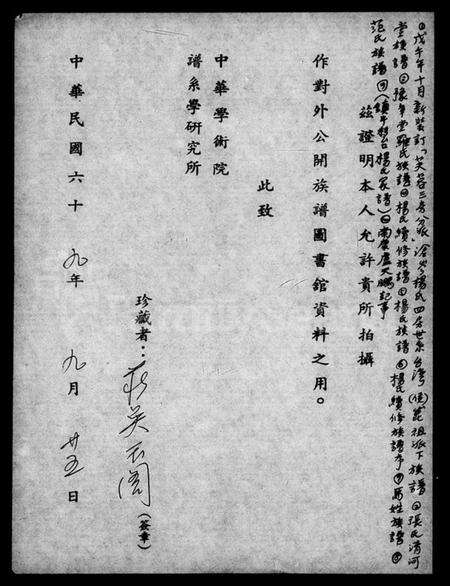 ①戊午年十月新裝訂、芙蓉三房分派、滄火今楊氏四合世系台灣(儘)崑祖派下族譜 ②張氏清河
堂族譜 ③豫章堂羅氏族譜 ④楊氏續修族譜 ⑤楊氏族譜 ⑥楊氏續修族譜序 ⑦馬姓族譜 ⑧
范氏族譜 ⑨(鎮平 楊氏家譜) 南屋盧大鵬記事
茲證明本人允許貴所拍攝
作對外公開族譜圖書館資料之用。
此致
中華學術院
譜系學研究所
珍藏者：莊吳玉 (簽章)
中華民國六十九年九月廿五日